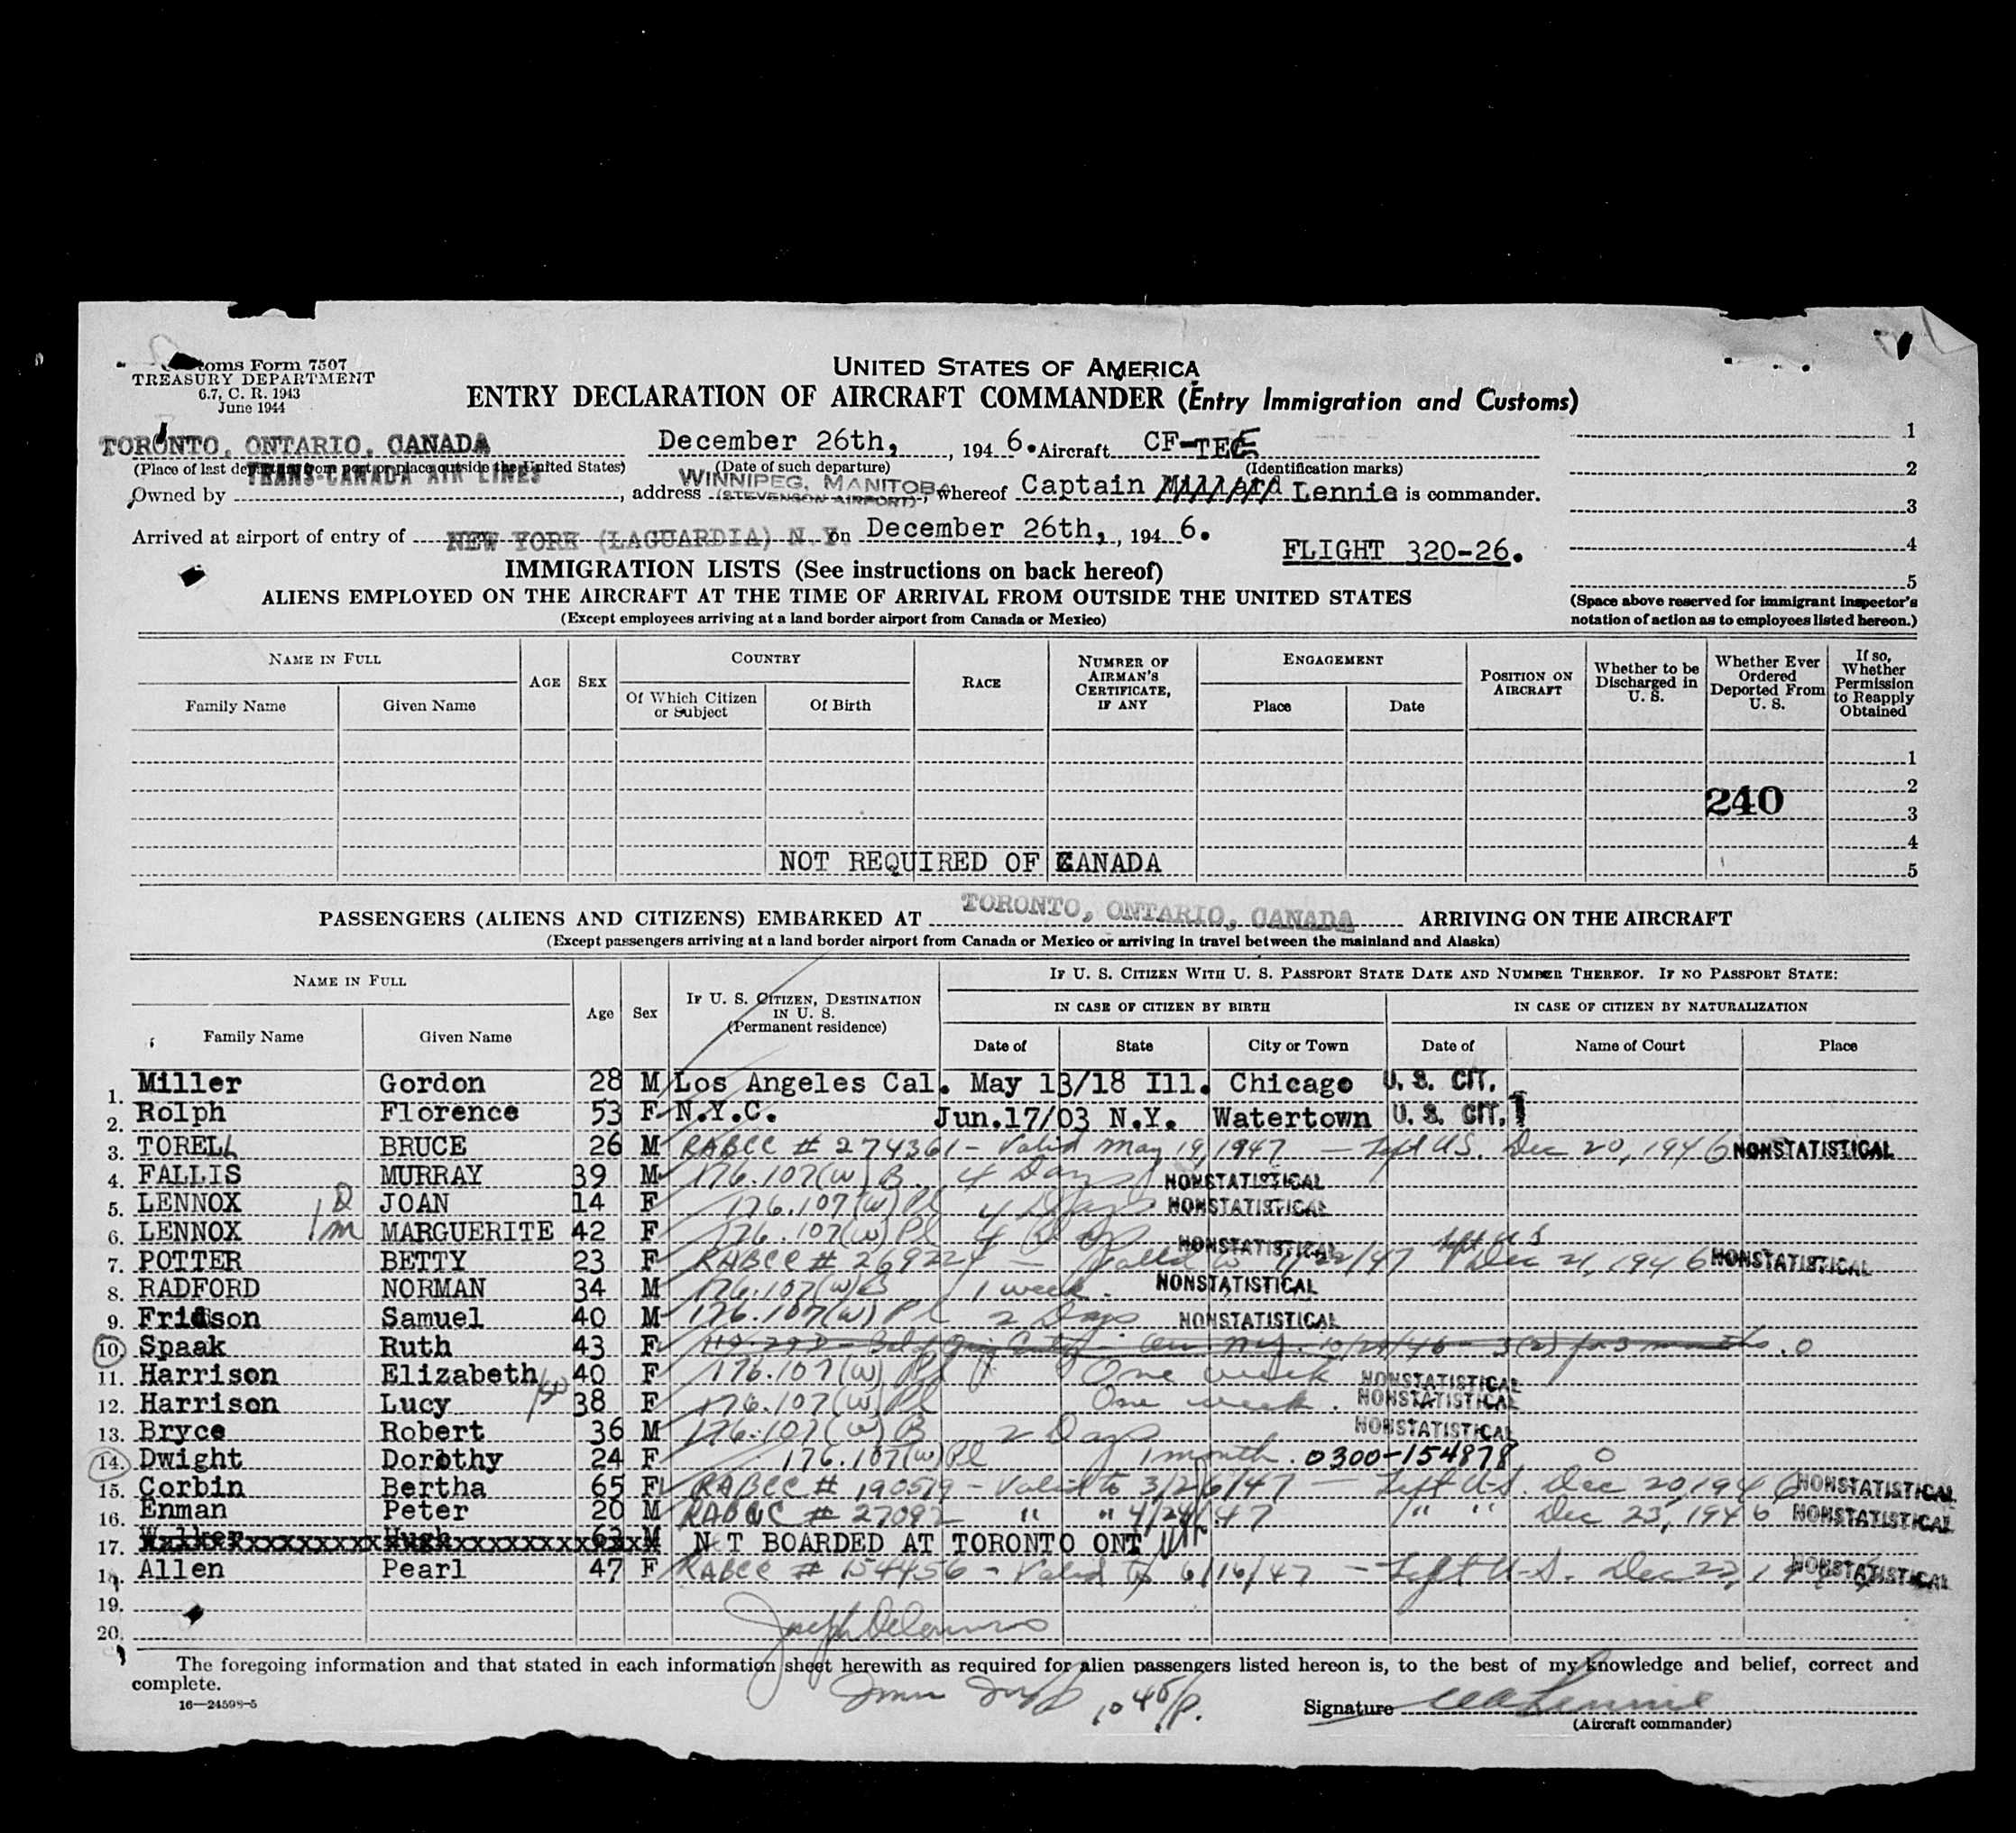 toms Form 7507
TREASURY DEPARTMENT
6.7, C. R. 1943
June 1944
UNITED STATES OF AMERICA
ENTRY DECLARATION OF AIRCRAFT COMMANDER (Entry Immigration and Customs)
TORONTO, ONTARIO, CANADA December 26th, , 194 6. Aircraft CF-TEE
(Place of last departure from port or place outside the United States) (Date of such departure) (Identification marks)
TRANS-CANADA AIR LINES WINNIPEG, MANITOBA
Owned by , address (STEVENSON AIRPORT) , whereof Captain Millard Lennie is commander.
Arrived at airport of entry of NEW YORK (LAGUARDIA) N. Y. on December 26th, , 194 6.
FLIGHT 320-26.
1
2
3
4
5
(Space above reserved for immigrant inspector's
notation of action as to employees listed hereon.)
IMMIGRATION LISTS (See instructions on back hereof)
ALIENS EMPLOYED ON THE AIRCRAFT AT THE TIME OF ARRIVAL FROM OUTSIDE THE UNITED STATES
(Except employees arriving at a land border airport from Canada or Mexico)
NAME IN FULL
Family Name Given Name
AGE SEX
COUNTRY
Of Which Citizen or Subject Of Birth
RACE
NUMBER OF AIRMAN'S CERTIFICATE, IF ANY
ENGAGEMENT
Place Date
POSITION ON AIRCRAFT
Whether to be Discharged in U. S.
Whether Ever Ordered Deported From U. S.
If so, Whether Permission to Reapply Obtained
1
2
240
3
4
NOT REQUIRED OF CANADA 5
PASSENGERS (ALIENS AND CITIZENS) EMBARKED AT TORONTO, ONTARIO, CANADA ARRIVING ON THE AIRCRAFT
(Except passengers arriving at a land border airport from Canada or Mexico or arriving in travel between the mainland and Alaska)
NAME IN FULL
Family Name Given Name
Age Sex
IF U. S. CITIZEN, DESTINATION IN U. S. (Permanent residence)
IF U. S. CITIZEN WITH U. S. PASSPORT STATE DATE AND NUMBER THEREOF. IF NO PASSPORT STATE:
IN CASE OF CITIZEN BY BIRTH IN CASE OF CITIZEN BY NATURALIZATION
Date of State City or Town Date of Name of Court Place
1. Miller Gordon 28 M Los Angeles Cal. May 13/18 Ill. Chicago U. S. CIT.
2. Rolph Florence 53 F N.Y.C. Jun.17/03 N.Y. Watertown U. S. CIT.
3. TORELL BRUCE 26 M RABCC # 274361 - Valid May 19, 1947 - Left US. Dec 20, 1946 NONSTATISTICAL
4. FALLIS MURRAY 39 M 176.107(w) B. 4 Days NONSTATISTICAL
5. LENNOX JOAN 14 F 176.107(w) Pl 4 Days NONSTATISTICAL
6. LENNOX MARGUERITE 42 F 176.107(w) Pl 4 NONSTATISTICAL
7. POTTER BETTY 23 F RABCC # 269224 - Valid to /22/47 Left US Dec 21, 1946 NONSTATISTICAL
8. RADFORD NORMAN 34 M 176.107(w) B 1 week. NONSTATISTICAL
9. Fridson Samuel 40 M 176.107(w) Pl 2 Days NONSTATISTICAL
10. Spaak Ruth 43 F 3(2) for 3 months. 0
11. Harrison Elizabeth 40 F 176.107(w) Pl One week NONSTATISTICAL
12. Harrison Lucy 38 F 176.107(w) Pl One week. NONSTATISTICAL
13. Bryce Robert 36 M 176.107(w) B 2 Days NONSTATISTICAL
14. Dwight Dorothy 24 F 176.107(w) Pl 1 month. 0300-154878 0
15. Corbin Bertha 65 F RABCC # 190519 - Valid to 3/26/47 - Left U.S. Dec 20, 1946 NONSTATISTICAL
16. Enman Peter 20 M RABCC # 27092 " " 4/24/47 " " Dec 23, 1946 NONSTATISTICAL
17. Walker Hugh 63 M N T BOARDED AT TORONTO ONT
18. Allen Pearl 47 F RABCC # 154456 - Valid to 6/16/47 - Left U.S. Dec 22, NONSTATISTICAL
19.
20.
The foregoing information and that stated in each information sheet herewith as required for alien passengers listed hereon is, to the best of my knowledge and belief, correct and
complete.
16—24598-5
10 45/P.
Signature Lennie
(Aircraft commander)